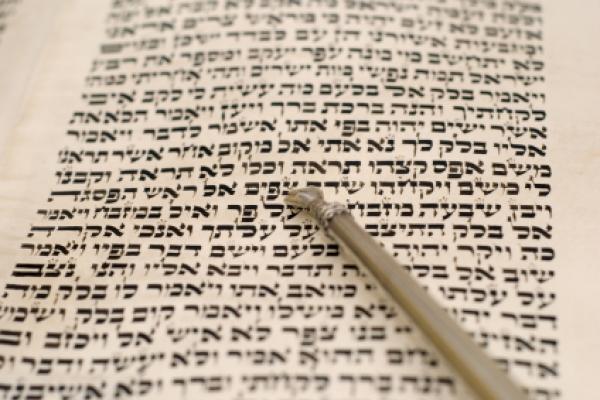 אזעם לא זעם יהוה כי מראש צרים אראנו
ומגבעות אשורנו הן עם לבדד ישכן ובגוים
לא יתחשב מי מנה עפר יעקב ומספר את רבע
ישראל תמת נפשי מות ישרים ותהי אחריתי כמהו
ויאמר בלק אל בלעם מה עשית לי לקב איבי
לקחתיך והנה ברכת ברך ויען ויאמר הלא את
אשר ישים יהוה בפי אתו אשמר לדבר ויאמר
אליו בלק לך נא אתי אל מקום אחר אשר תראנו
משם אפס קצהו תראה וכלו לא תראה וקבנו
לי משם ויקחהו שדה צפים אל ראש הפסגה
ויבן שבעה מזבחת ויעל פר ואיל במזבח ויאמר
אל בלק התיצב על עלתך ואנכי אקרה
כה ויקר יהוה בלעם וישם דבר בפיו ויאמר
שוב אל בלק תדבר ויבא אליו והנו נצב
על עלתו מואב אתו ויאמר לו בלק מה
דבר יהוה משלו ויאמר קום בלק ושמע
בנו צפר לא איש אל ויכזב
ההוא אמר ולא יעשה ודבר
הנה ברך לקחתי וברך ולא אשיבנה